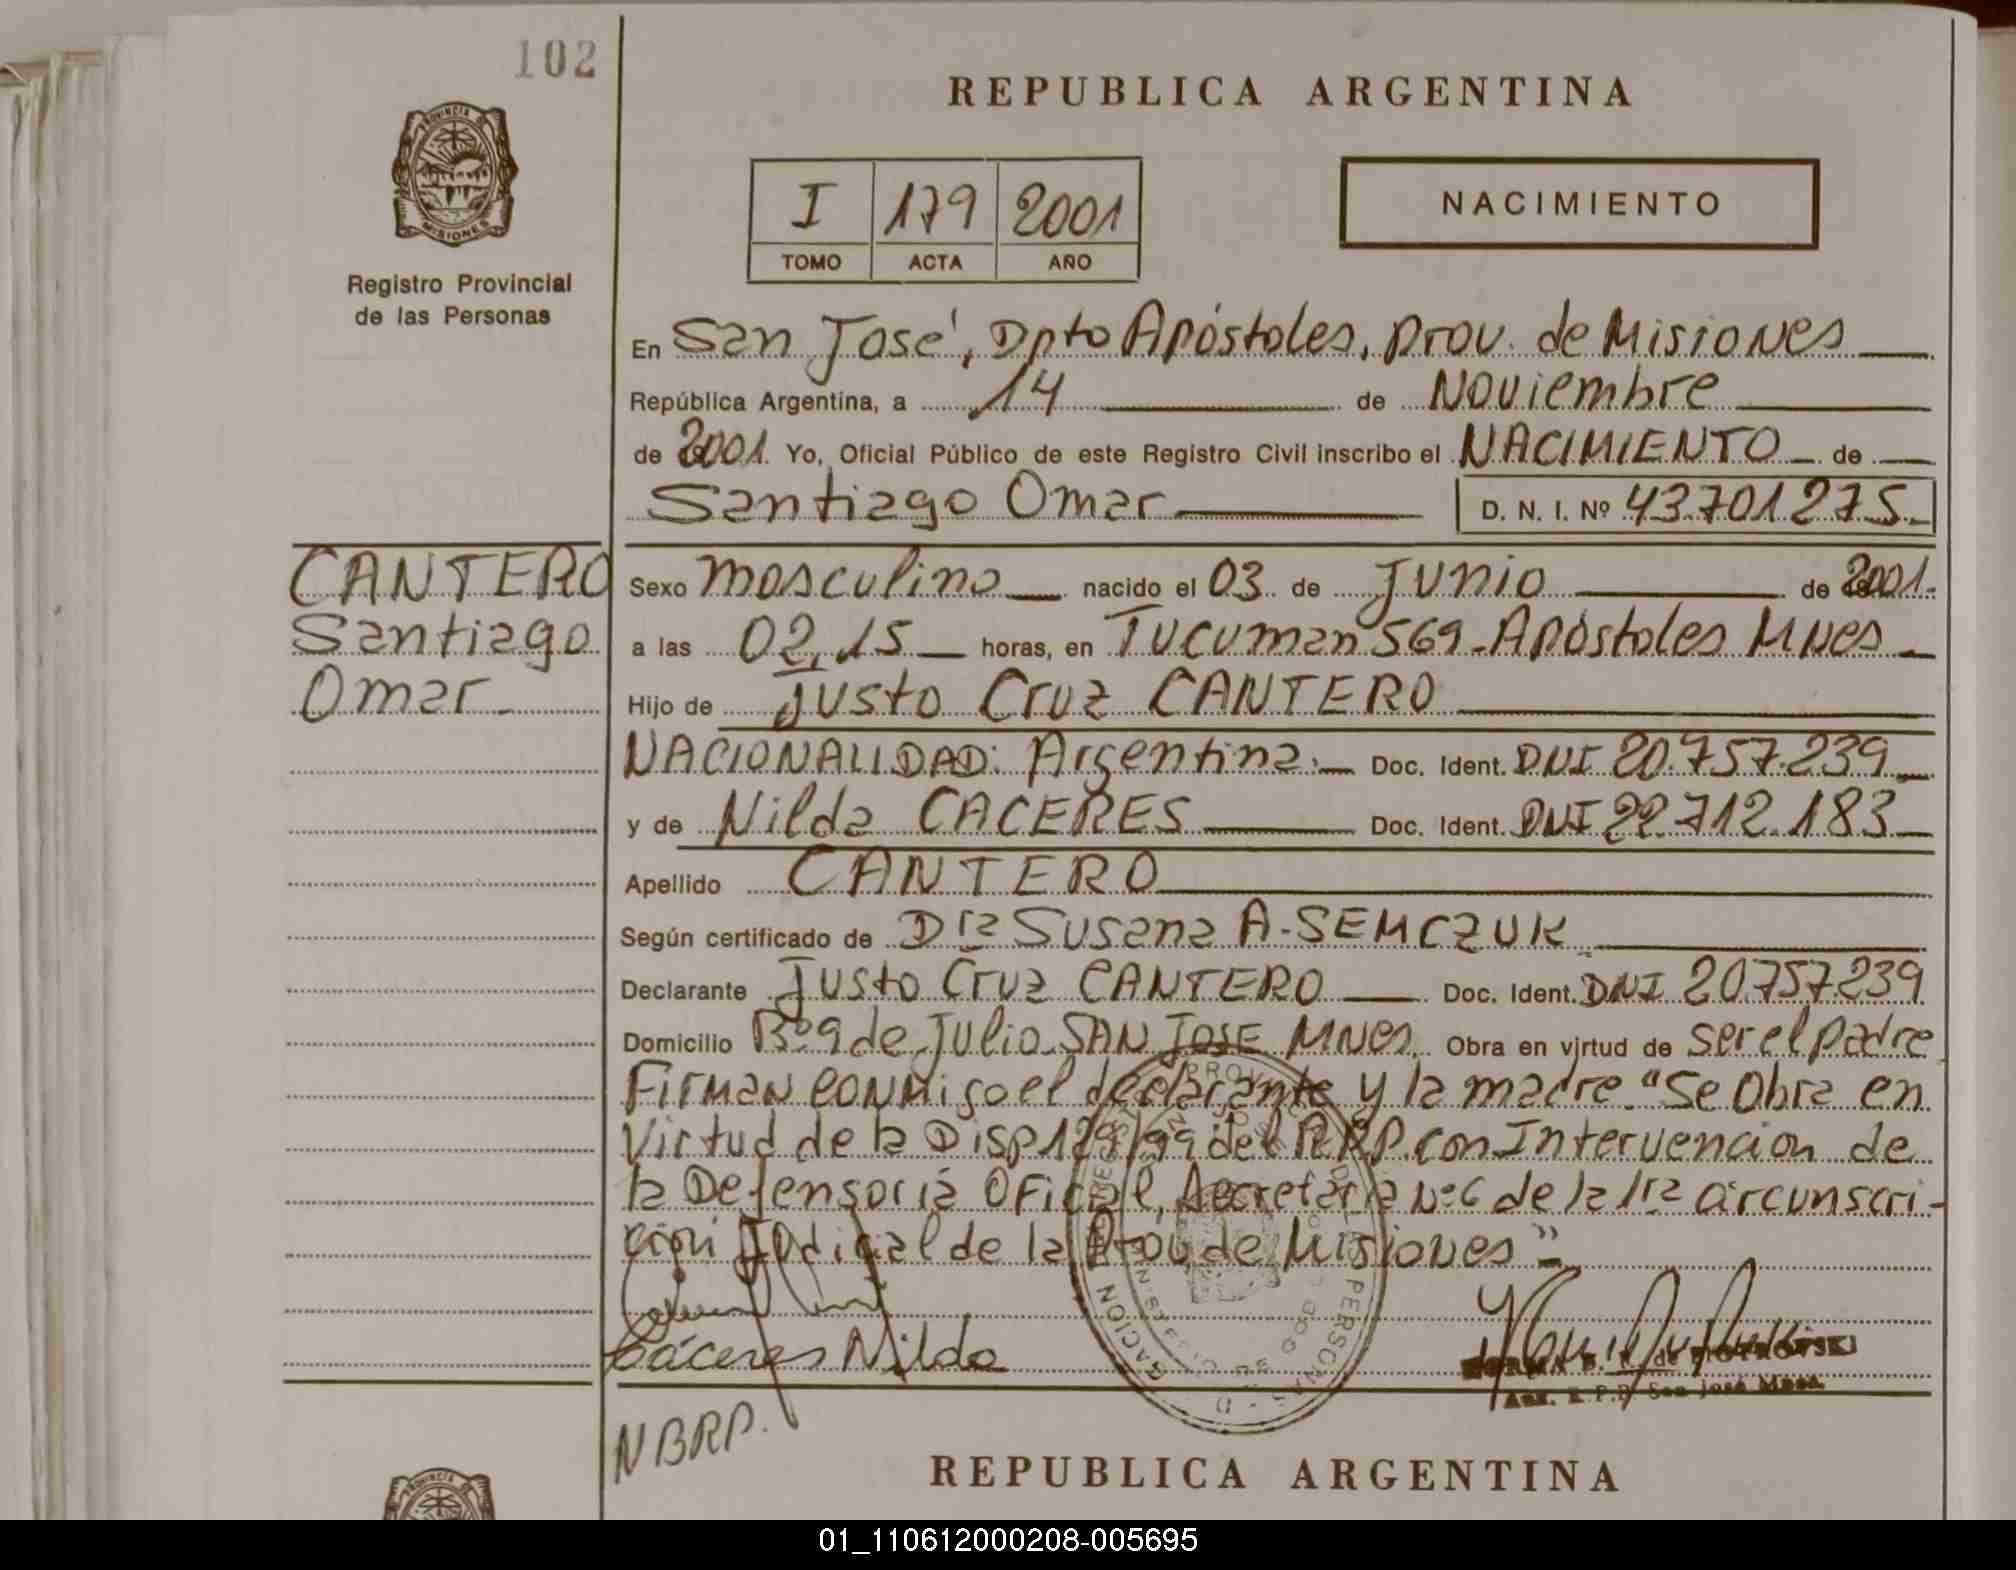 102
REPUBLICA ARGENTINA
PROVINCIA DE
MISIONES
I 179 2001
TOMO ACTA AÑO
NACIMIENTO
Registro Provincial
de las Personas
En San José, Dpto Apóstoles, Prov. de Misiones
República Argentina, a 14 de Noviembre
de 2001. Yo, Oficial Público de este Registro Civil inscribo el NACIMIENTO de
Santiago Omar D. N. I. Nº 43.701.275
CANTERO
Santiago
Omar
Sexo masculino nacido el 03 de Junio de 2001.
a las 02,15 horas, en Tucuman 569-Apóstoles Mnes
Hijo de Justo Cruz CANTERO
NACIONALIDAD: Argentina. Doc. Ident. DNI 20.757.239
y de Nilda CACERES Doc. Ident. DNI 22.712.183
Apellido CANTERO
Según certificado de Dra Susana A. SEMCZUK
Declarante Justo Cruz CANTERO Doc. Ident. DNI 20.757.239
Domicilio Bº 9 de Julio SAN JOSE MNES Obra en virtud de ser el padre
Firman conmigo el declarante y la madre. "Se Obra en
Virtud de la Disp 129/99 del RPP. con Intervencion de
la Defensoria Oficial, Secretaria Nº 6 de la 1ra circunscri-
cion Judicial de la Prov de Misiones"
Cáceres Nilda
NBRP.
REPUBLICA ARGENTINA
01_110612000208-005695